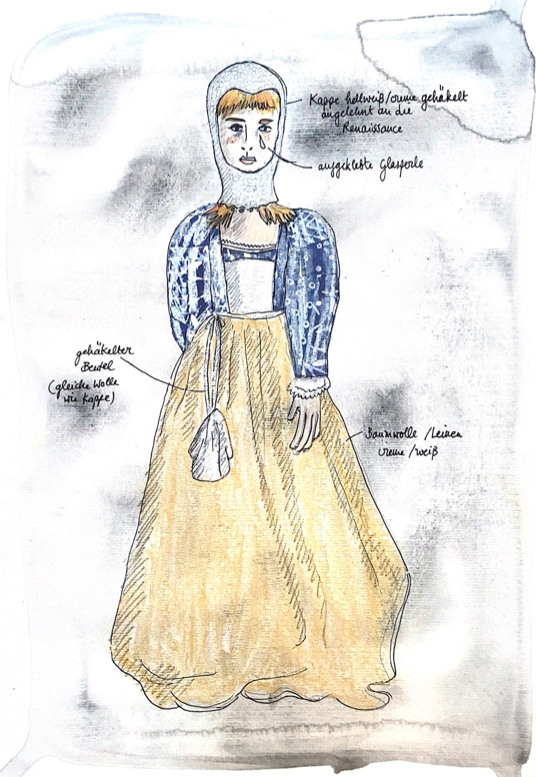 Kappe hellweiß/creme gehäkelt
angelehnt an die
Renaissance
aufgeklebte Glasperle
gehäkelter
Beutel
(gleiche Wolle
wie Kappe)
Baumwolle/Leinen
creme/weiß